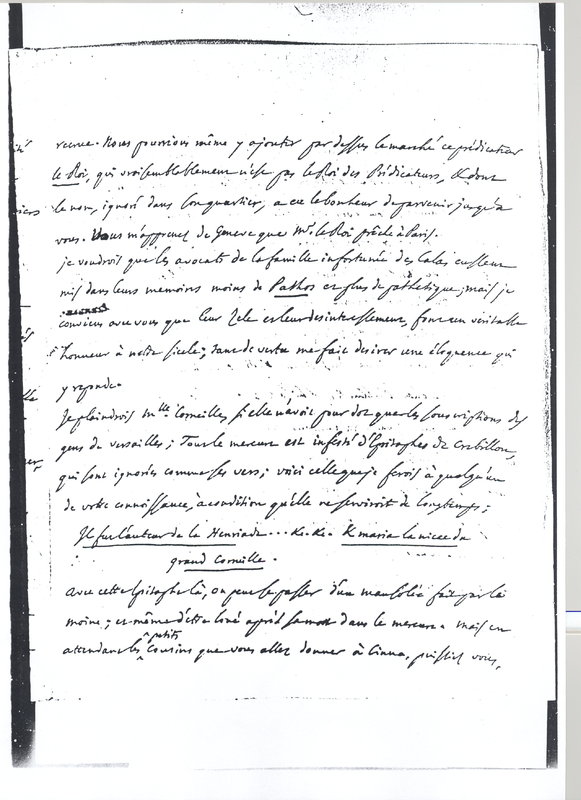 recrue. Nous pourrions même y ajouter par dessus le marché ce prédicateur
le Roi, qui vraisemblablement n'est pas le Roi des Prédicateurs, & dont
le nom, ignoré dans son quartier, a eu le bonheur de parvenir jusqu'à
vous. Vous m'apprenez de Geneve que Mr. le Roi prêche à Paris.
je voudrois que les avocats de la famille infortunée des Calas eussent
mis dans leurs memoires moins de Pathos et plus de pathétique; mais je
conviens avec vous que leur zele et leur desinteressement, font un véritable
honneur à notre siecle; tant de vertu me fait desirer une éloquence qui
y reponde.
Je plaindrois Mlle Corneille, si elle n'avoit pour dot que les souscriptions des
gens de versailles; Tout le mercure est infesté d'Epitaphes de Crebillon,
qui sont ignorées comme ses vers; voici celle que je ferois à quelqu'un
de votre connoissance, à condition qu'elle ne serviroit de longtemps;
Il fut l'auteur de la Henriade... &c. &c. & maria la niece du
grand Corneille.
Avec cette Epitaphe là, on peut se passer d'un mausolée fait par le
moine; et même d'être loué après sa mort dans le mercure. mais en
attendant les petits Cousins que vous allez donner à Cinna, puissiez vous,